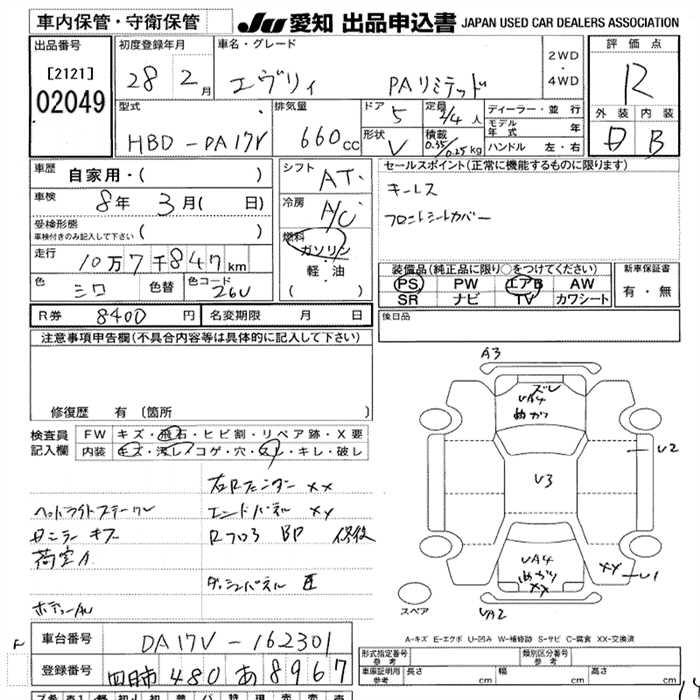 車内保管・守衛保管
JU 愛知 出品申込書 JAPAN USED CAR DEALERS ASSOCIATION
出品番号
[2121]
02049
初度登録年月
28年 2月
車名・グレード
エヴリィ PAリミテッド
2WD
・
4WD
評価点
R
外装 内装
D B
型式
HBD-DA17V
排気量
660cc
ドア
5
定員
2/4人
形状
V
積載
0.35/0.25kg
ディーラー・並行
モデル年式 年
ハンドル 左・右
車歴 自家用・( )
車検 8年 3月( 日)
受検形態
車検付きのみ記入して下さい ( )
走行 10万7千847km
色 シロ 色替 色コード 26U
シフト AT
冷房 A/C
燃料
ガソリン
・
軽・油
( )
セールスポイント(正常に機能するものに限ります)
キーレス
フロントシートカバー
装備品(純正品に限り○をつけてください)
PS PW エアB AW
SR ナビ TV カワシート
新車保証書
有・無
R券 8400円 名変期限 月 日
後日品
注意事項申告欄(不具合内容等は具体的に記入して下さい)
修復歴 有 (箇所 )
検査員
記入欄
FW キズ・飛石・ヒビ割・リペア跡・X要
内装 キズ・汚レ・コゲ・穴・スレ・キレ・破レ
右Rフェンダー XX
ヘッドライトステークル エンドパネル XY
キズ Rフロア BP
荷室
ダッシュパネル
ボディー
A3
ズレ
UA4
めがり
U2
U3
UA4
めがり
XX
XY
U1
UA2
スペア
A-キズ E-エクボ U-凹み W-補修跡 S-サビ C-腐食 XX-交換済
車台番号 DA17V-162301
登録番号 四日市 480 あ 8967
形式指定番号
参考
類別区分番号
参考
車両証明用
参考
長さ cm 幅 cm 高さ cm